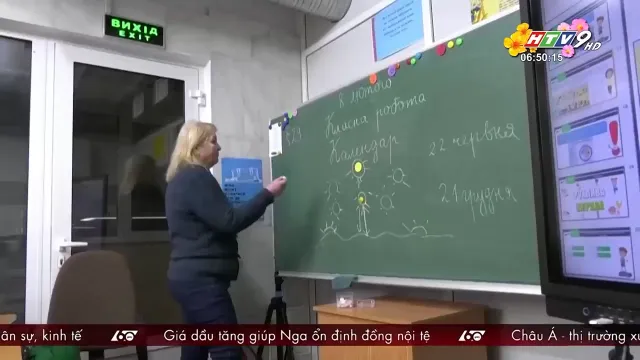 ВИХІД
EXIT
HTV9 HD
06:50:15
8 лютого
Класна робота
Календар
22 червня
21 грудня
ân sự, kinh tế
60
Giá dầu tăng giúp Nga ổn định đồng nội tệ
60
Châu Á - thị trường x